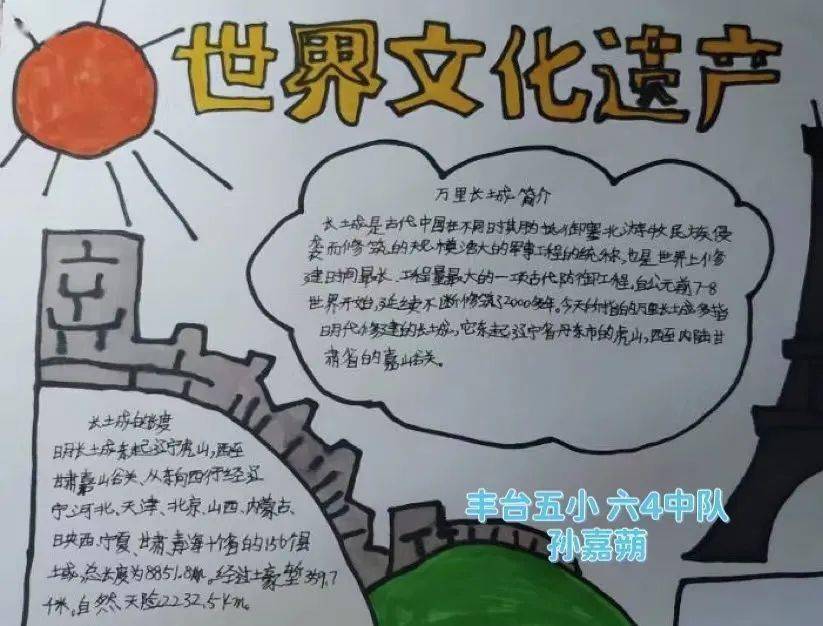 世界文化遗产
万里长城简介
长城是古代中国在不同时期为抵御塞北游牧民族侵
袭而修筑的规模浩大的军事工程的统称,也是世界上修
建时间最长、工程量最大的一项古代防御工程,自公元前7-8
世界开始,延续不断修筑了2000多年。今天所指的万里长城多指
明代修建的长城,它东起辽宁省丹东市的虎山,西至内陆甘
肃省的嘉山谷关。
长城的长度
明长城东起辽宁虎山,西至
甘肃嘉山谷关,从东向西行经辽
宁河北、天津、北京、山西、内蒙古、
陕西、宁夏、甘肃、青海十省的156个县
域,总长度为8851.8m,经过土壕堑359.7
千米,自然天险2232.5km。
丰台五小 六4中队
孙嘉蒴